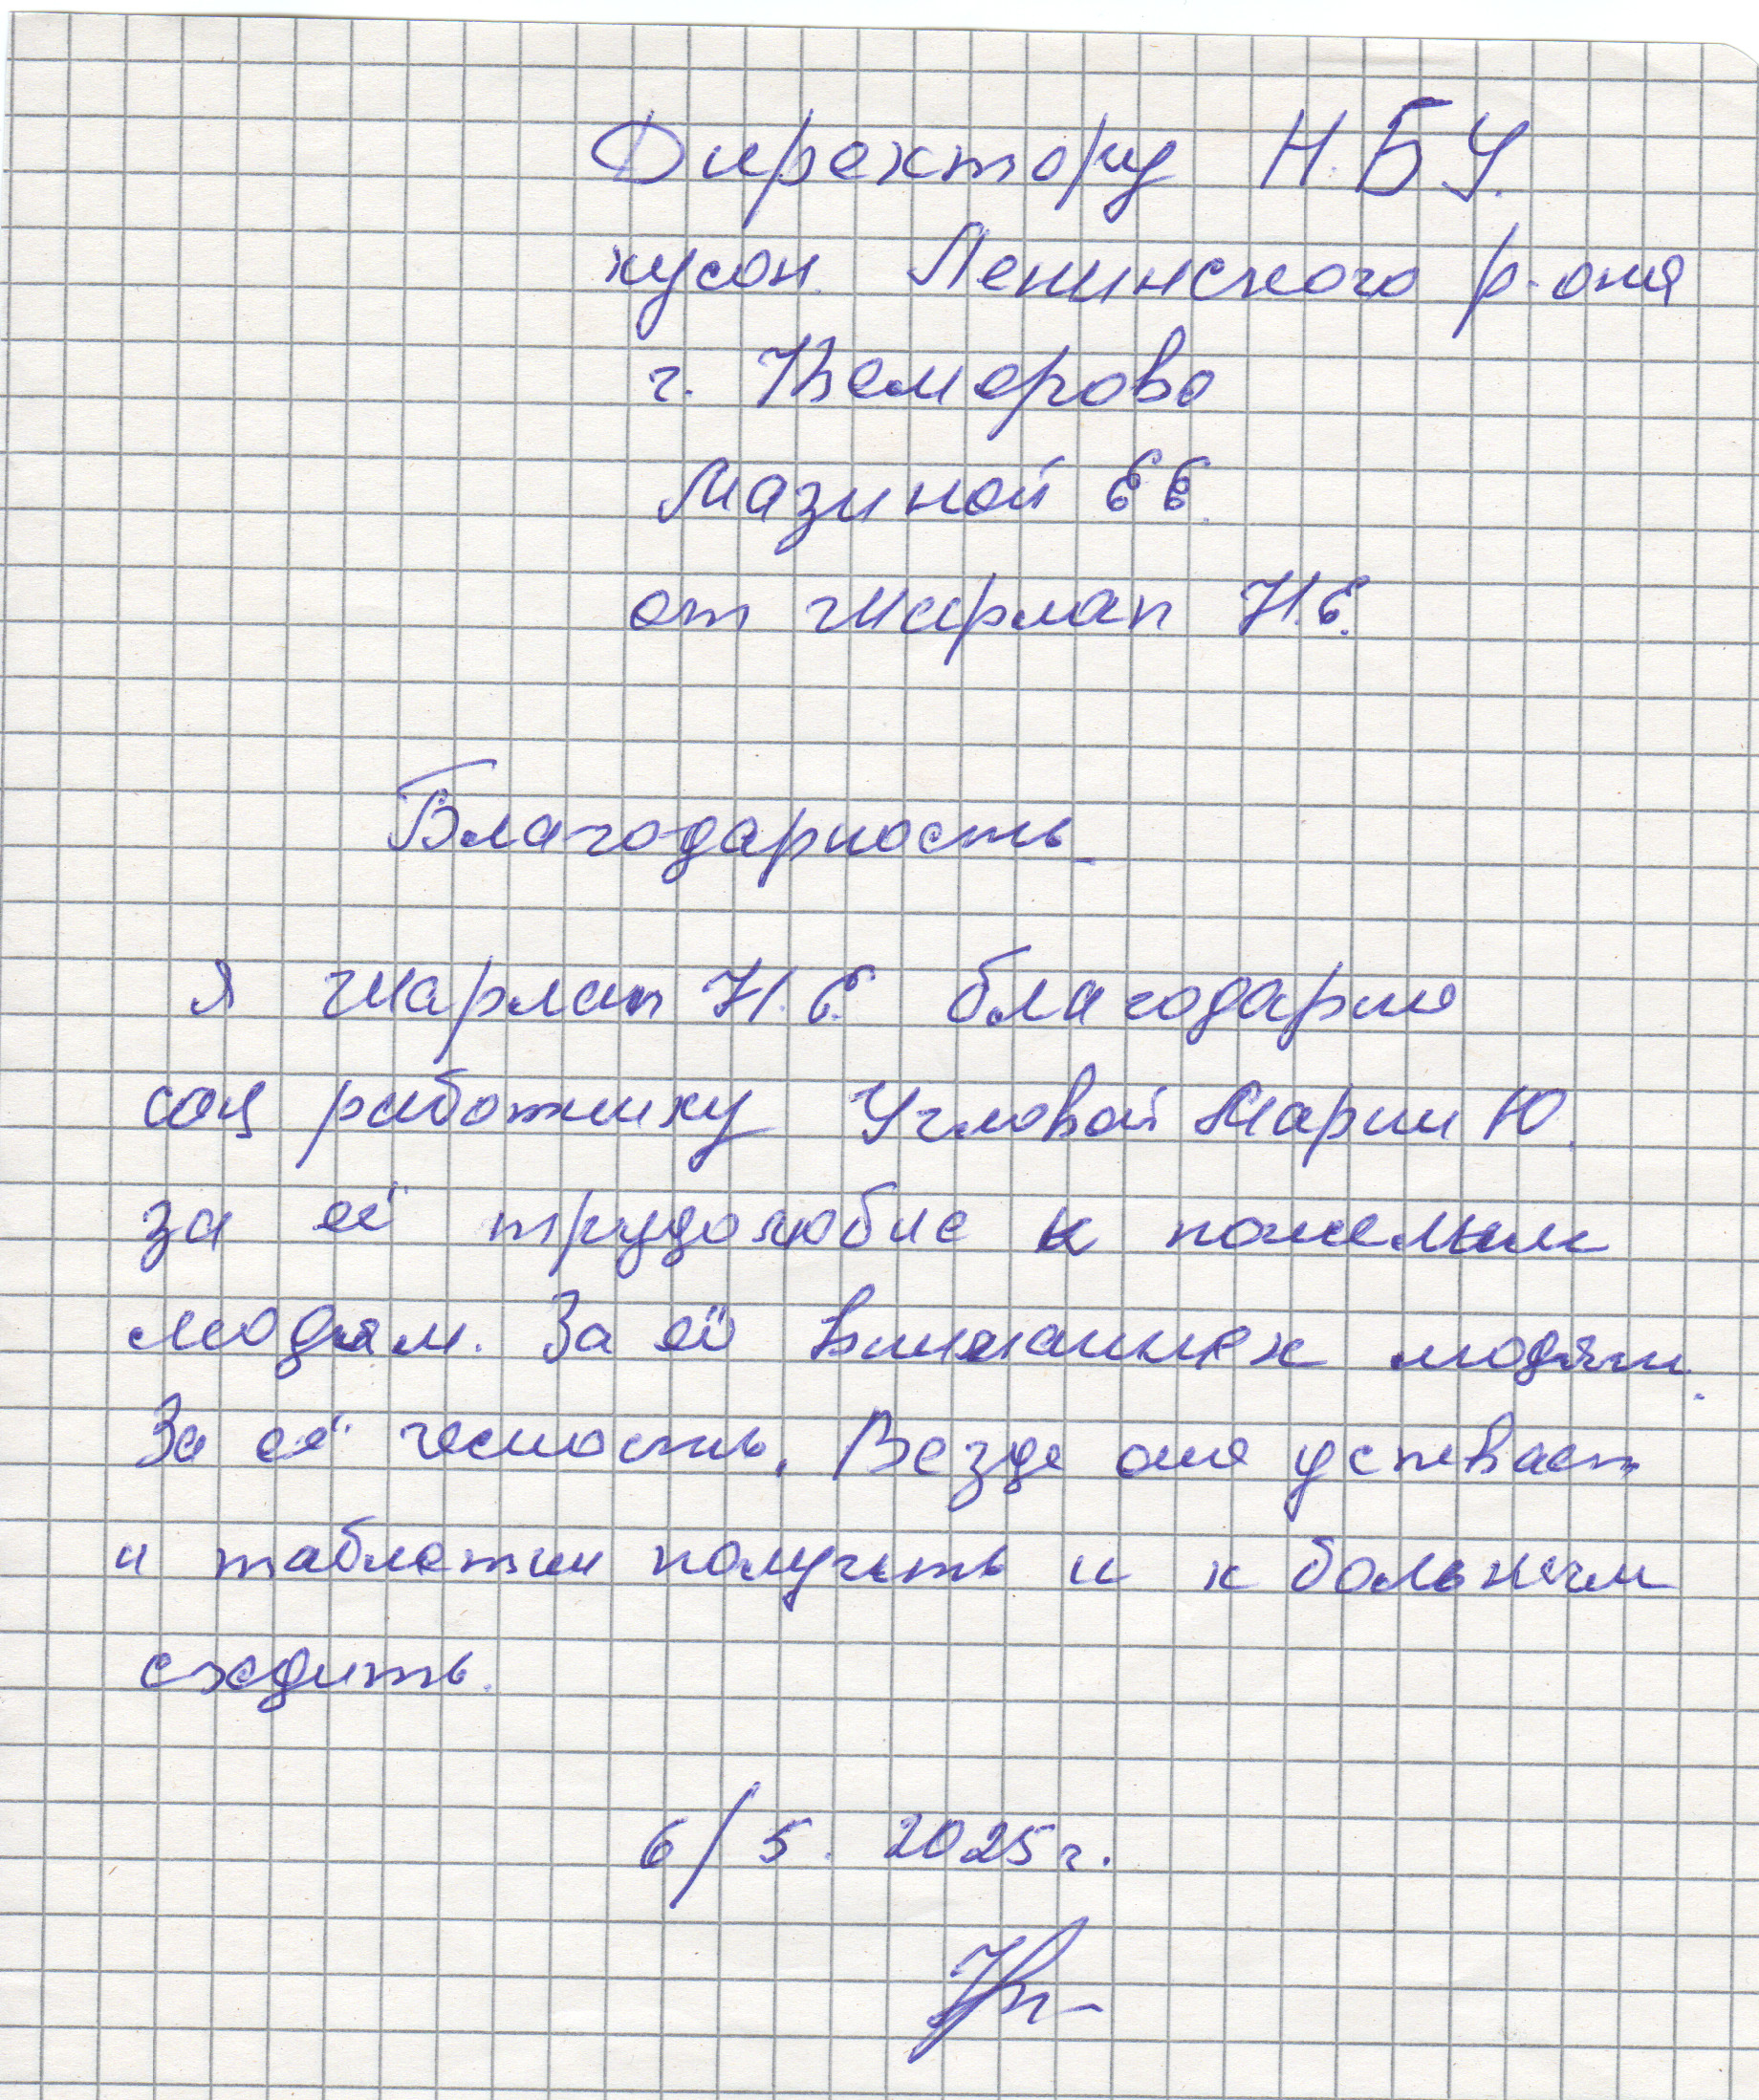 Директору Н.Б.У.
кусон Ленинского р-она
г. Кемерово
Мазиной Е Е.
от Шарлап Н.Е.
Благодарность.
Я Шарлап Н.Е. благодарю
соц работнику Угловой Марии Ю.
за её трудолюбие к пожелым
людям. За её внимание к людям.
За её чесность. Везде она успевает
и таблетки получить и к больным
сходить.
6/5. 2025г.